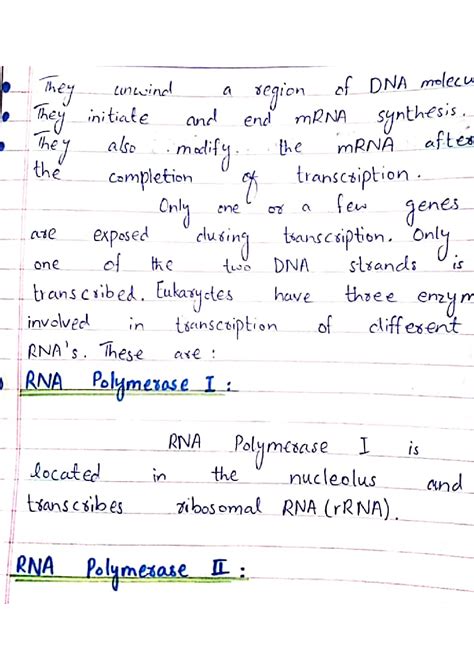 They unwind a region of DNA molecu
They initiate and end mRNA synthesis.
They also modify. the mRNA after
the completion of transcription.
Only one or a few genes
are exposed during transcription. Only
one of the two DNA strands is
transcribed. Eukaryotes have three enzym
involved in transcription of different
RNA's. These are :
RNA Polymerase I :
RNA Polymerase I is
located in the nucleolus and
transcribes ribosomal RNA (rRNA).
RNA Polymerase II :